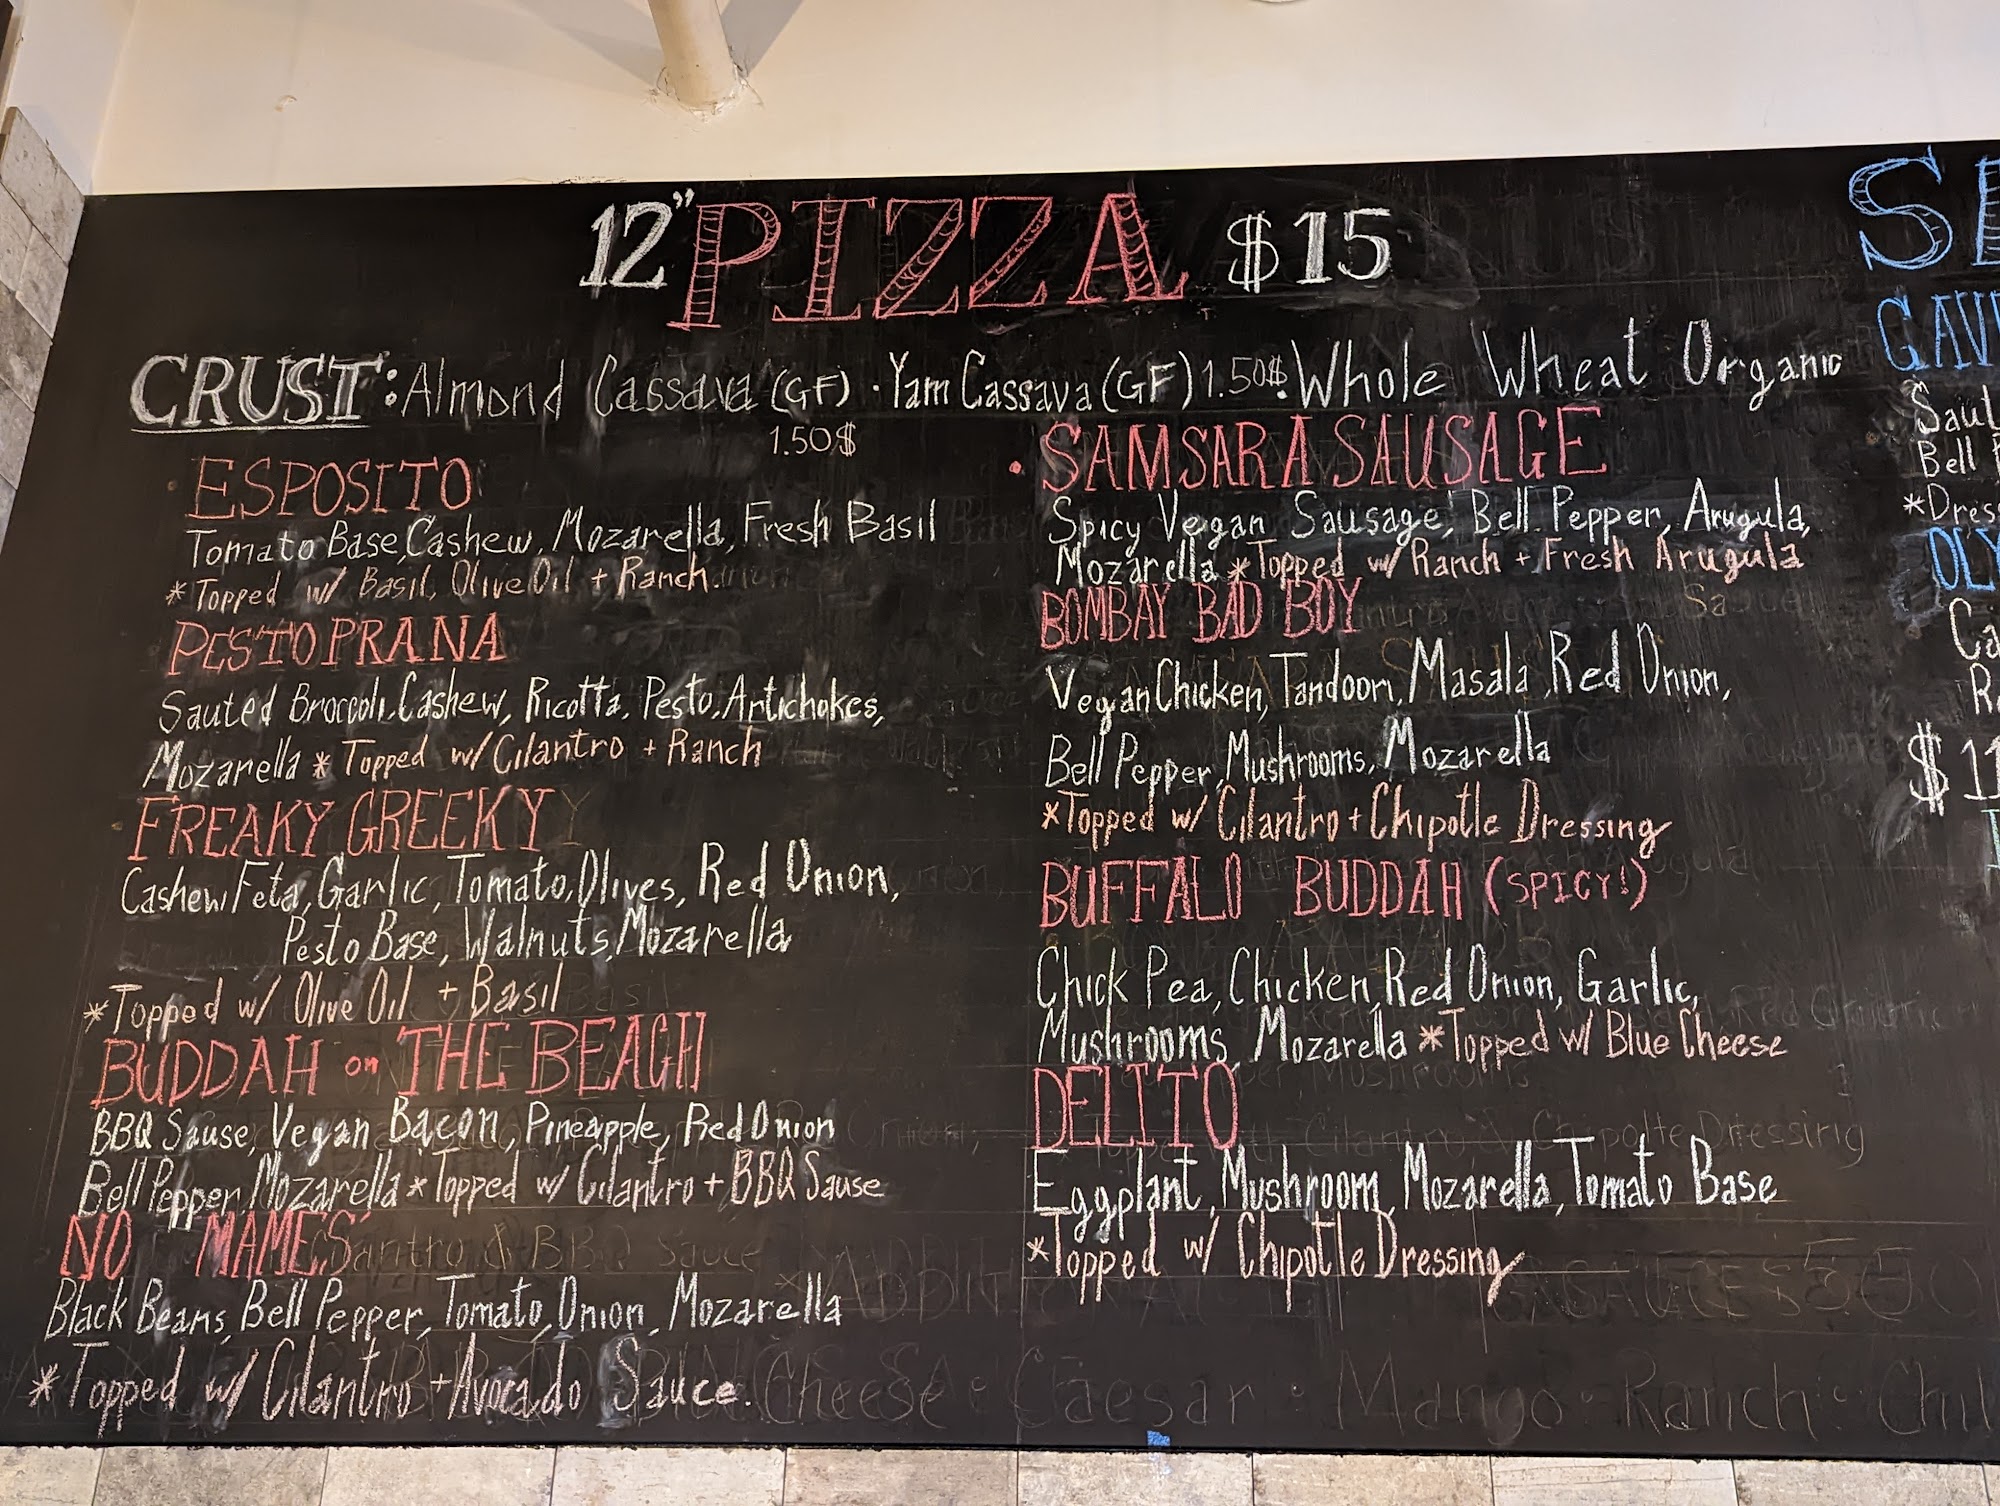 12" PIZZA $15
CRUST: Almond Cassava (GF) · Yam Cassava (GF) 1.50$ · Whole Wheat Organic
1.50$
ESPOSITO
Tomato Base, Cashew, Mozarella, Fresh Basil
*Topped w/ Basil, Olive Oil + Ranch
PESTO PRANA
Sauted Broccoli, Cashew, Ricotta, Pesto, Artichokes,
Mozarella *Topped w/ Cilantro + Ranch
FREAKY GREEKY
Cashew, Feta, Garlic, Tomato, Olives, Red Onion,
Pesto Base, Walnuts, Mozarella
*Topped w/ Olive Oil + Basil
BUDDAH on THE BEACH
BBQ Sause, Vegan Bacon, Pineapple, Red Onion
Bell Pepper, Mozarella *Topped w/ Cilantro + BBQ Sause
NO MAMES
Black Beans, Bell Pepper, Tomato, Onion, Mozarella
*Topped w/ Cilantro + Avocado Sauce.
· SAMSARA SAUSAGE
Spicy Vegan Sausage, Bell Pepper, Arugula,
Mozarella *Topped w/ Ranch + Fresh Arugula
BOMBAY BAD BOY
Vegan Chicken, Tandoori, Masala, Red Onion,
Bell Pepper, Mushrooms, Mozarella
*Topped w/ Cilantro + Chipotle Dressing
BUFFALO BUDDAH (SPICY!)
Chick Pea, Chicken, Red Onion, Garlic,
Mushrooms, Mozarella *Topped w/ Blue Cheese
DELITO
Eggplant, Mushroom, Mozarella, Tomato Base
*Topped w/ Chipotle Dressing
Cheese · Caesar · Mango · Ranch ·
Bell
$11